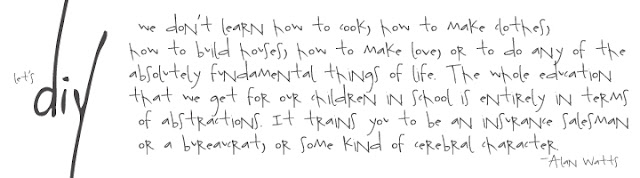 let's
diy
we don't learn how to cook, how to make clothes,
how to build houses, how to make love, or to do any of the
absolutely fundamental things of life. The whole education
that we get for our children in school is entirely in terms
of abstractions. It trains you to be an insurance salesman
or a bureaucrat, or some kind of cerebral character
-Alan Watts